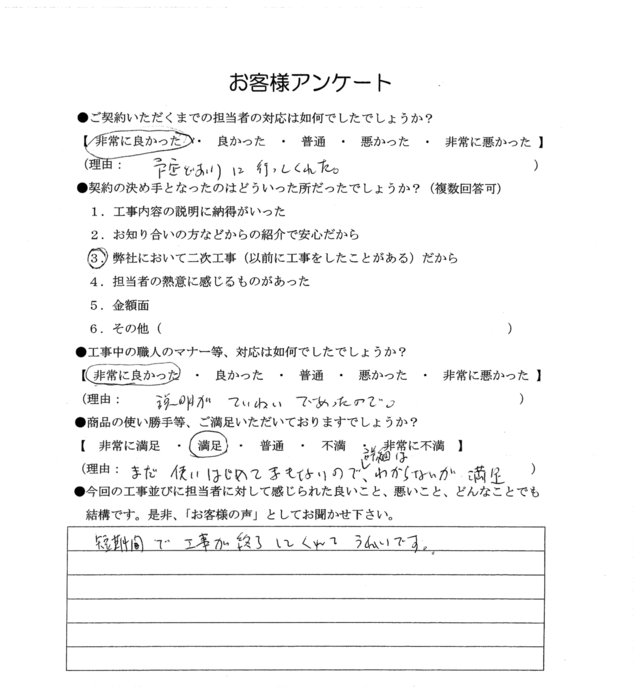 お客様アンケート
●ご契約いただくまでの担当者の対応は如何でしたでしょうか？
【 非常に良かった ・ 良かった ・ 普通 ・ 悪かった ・ 非常に悪かった 】
(理由： 予定どおりに行ってくれた。 )
●契約の決め手となったのはどういった所だったでしょうか？（複数回答可）
1．工事内容の説明に納得がいった
2．お知り合いの方などからの紹介で安心だから
3．弊社において二次工事（以前に工事をしたことがある）だから
4．担当者の熱意に感じるものがあった
5．金額面
6．その他（ ）
●工事中の職人のマナー等、対応は如何でしたでしょうか？
【 非常に良かった ・ 良かった ・ 普通 ・ 悪かった ・ 非常に悪かった 】
(理由： 説明がていねいであったので。 )
●商品の使い勝手等、ご満足いただいておりますでしょうか？
【 非常に満足 ・ 満足 ・ 普通 ・ 不満 ・ 非常に不満 】
(理由： まだ使いはじめてまもないので、詳細はわからないが満足 )
●今回の工事並びに担当者に対して感じられた良いこと、悪いこと、どんなことでも
結構です。是非、「お客様の声」としてお聞かせ下さい。
短期間で工事が終了してくれてうれいです。